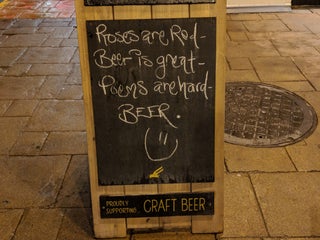 Roses are Red-
Beer is great-
Poems are hard-
BEER.
PROUDLY
SUPPORTING
CRAFT BEER